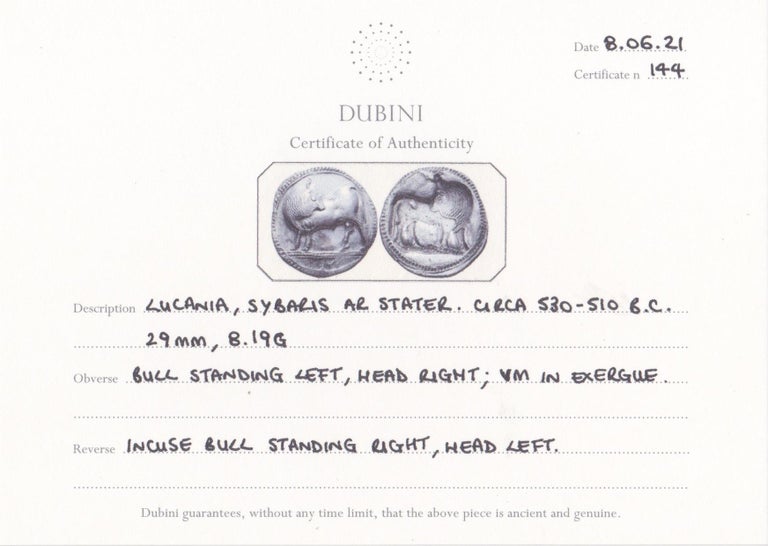 Date 8.06.21
Certificate n 144
DUBINI
Certificate of Authenticity
Description LUCANIA, SYBARIS AR STATER. CIRCA 530-510 B.C.
29mm, 8.19G
Obverse BULL STANDING LEFT, HEAD RIGHT; VM IN EXERGUE.
Reverse INCUSE BULL STANDING RIGHT, HEAD LEFT.
Dubini guarantees, without any time limit, that the above piece is ancient and genuine.